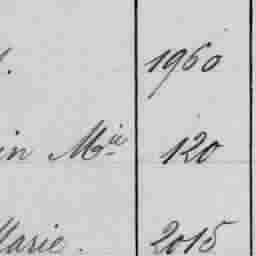 1960
in Mie 120
Marie. 2015